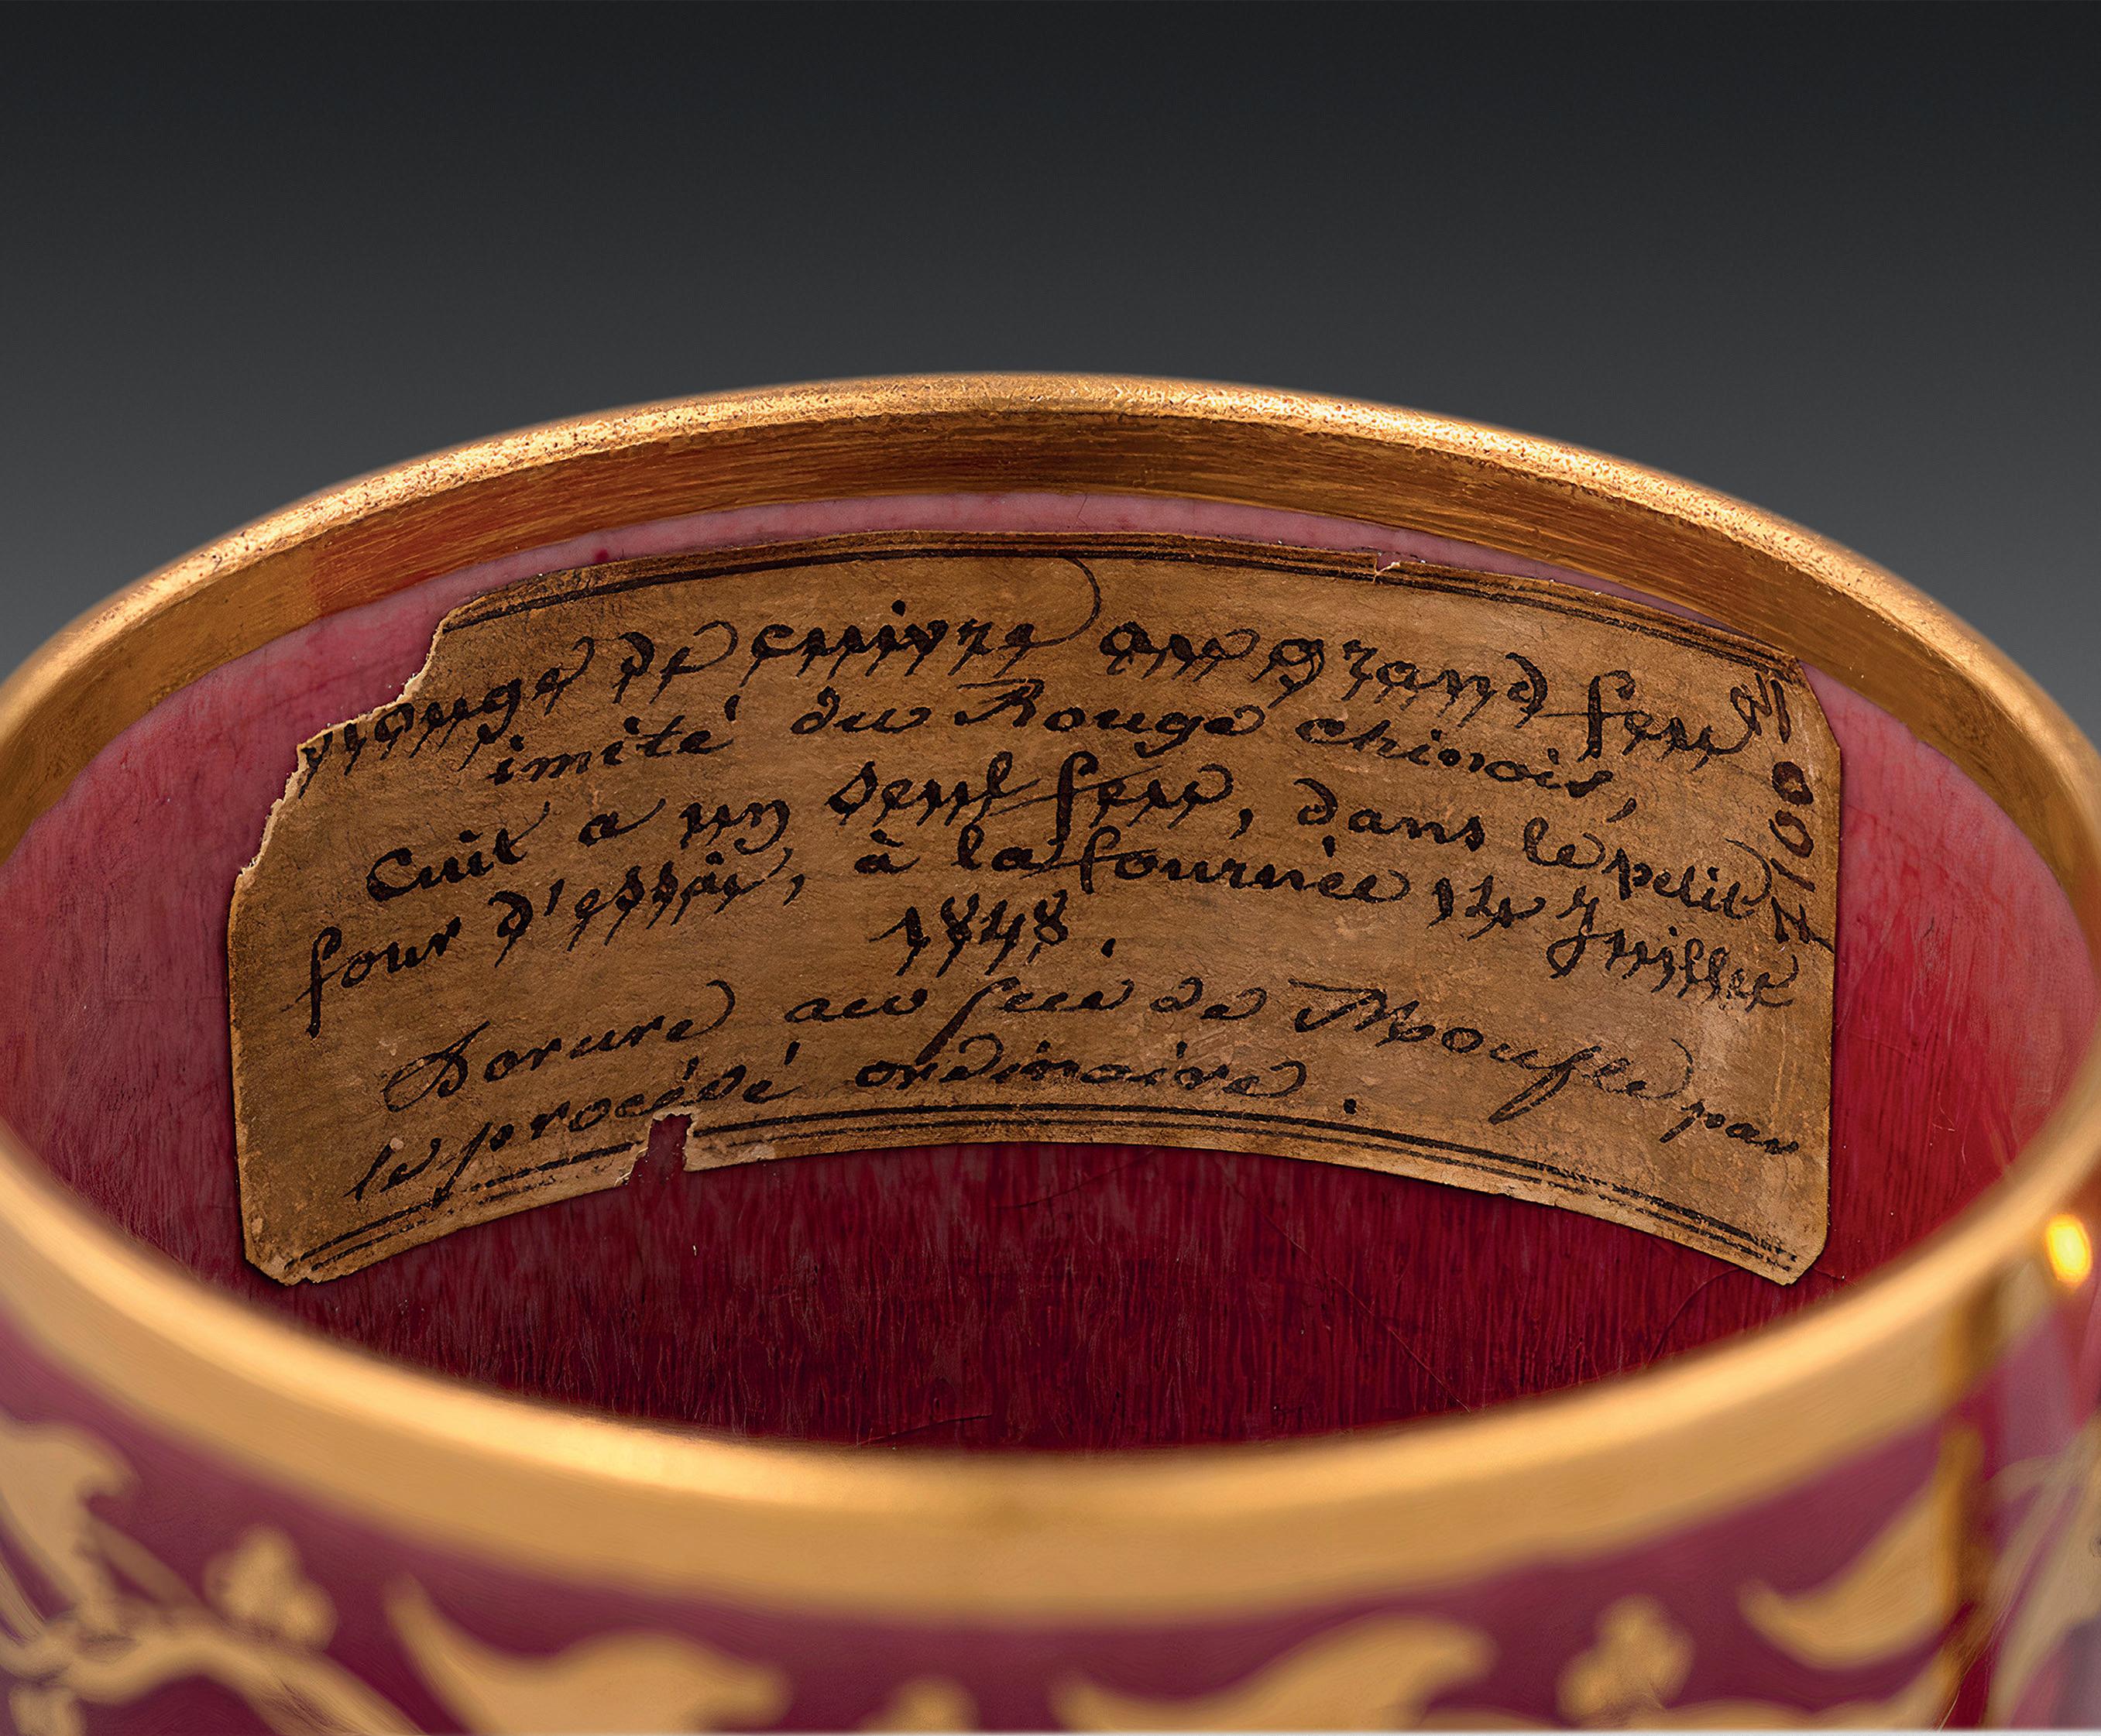 rouge de cuivre au grand feu
imité du Rouge chinois,
Cuit a un seul feu, dans le petit
four d'essai, à la fournée 14 Juillet
1848.
Dorure au feu de Moufle par
le procédé ordinaire.